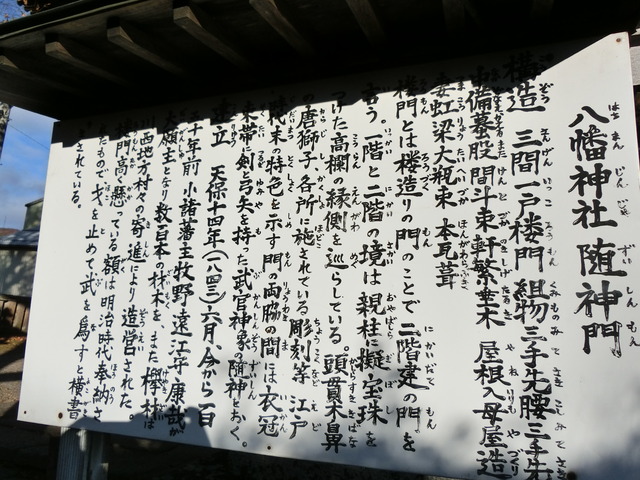 八幡神社 随神門
構造 三間一戸楼門 組物三手先腰三手先
中備蟇股間斗束軒繁垂木 屋根入母屋造
妻虹梁大瓶束 本瓦葺
楼門とは楼造りの門のことで二階建の門を
言う。一階と二階の境は親柱に擬宝珠を
つけた高欄の縁側を巡らしている。頭貫木鼻
の唐獅子各所に施されている彫刻等 江戸
時代末の特色を示す門の両脇の間には衣冠
束帯に剣と弓矢を持った武官神象の随神おく。
建立 天保十四年(一八四三)六月、今から一百
十年前 小諸藩主牧野遠江守康哉が
大願主となり数百本の材木を、また欅材は
川西地方村々の寄進により造営された。
楼門高く懸っている額は明治時代奉納さ
たもので 戈を止めて武を為すと横書
されている。